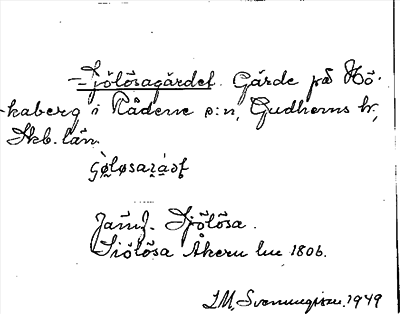 Sjölösagärdet. Gärde på Hö-
kaberg i Rådene s:n, Gudhems hr,
Skb. län.
Jämf. Sjölösa.
Siölösa Åkern lm 1806.
I.M. Svenungsson. 1949